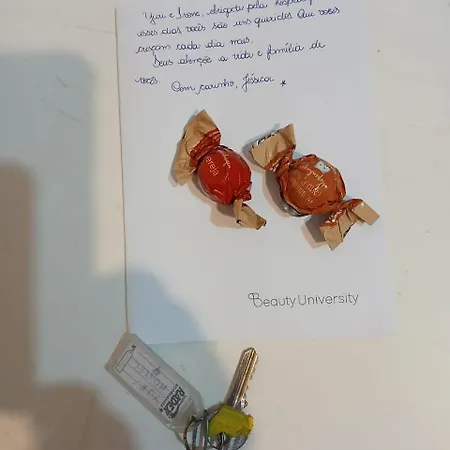 Yuri e Irene, obrigada pela hospedag
esses dias vocês são uns querides. Que vocês
cresçam cada dia mais.
Deus abençõe a vida e família de
vocês.
Com carinho, Jéssica
ereja
BeautyUniversity
RADEX